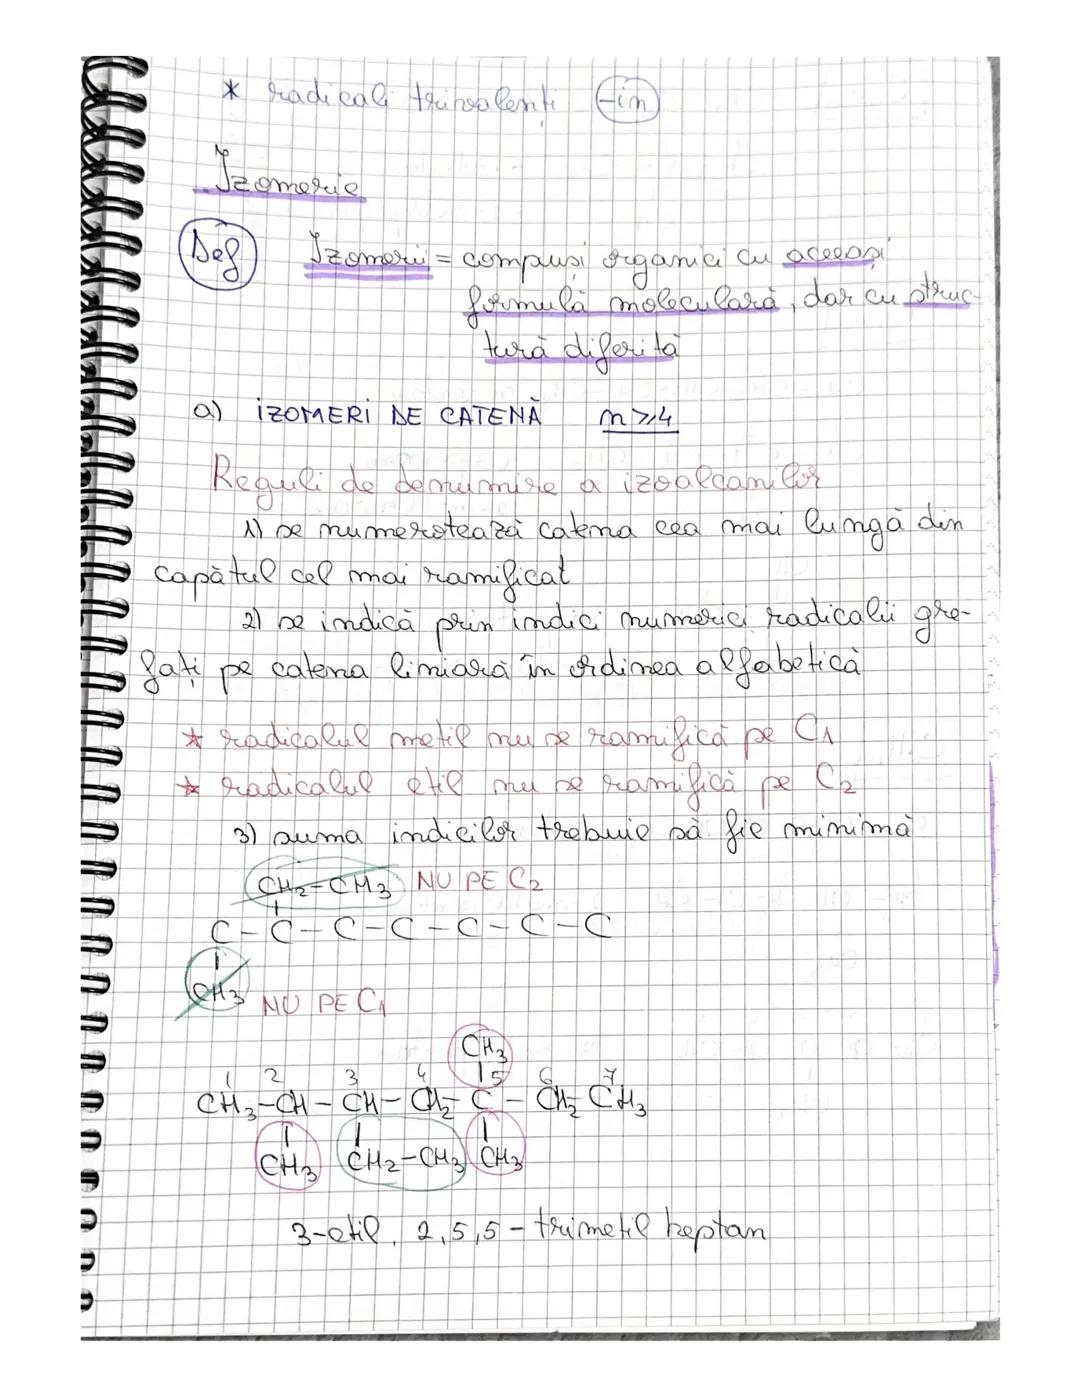 * radicali trivalenți -in
Izomerie
Def Izomeri = compuși organici cu aceeași
formulă moleculară, dar cu struc-
tură diferită
a) IZOMERI DE CATENĂ n ≥ 4
Reguli de denumire a izoalcanilor
1) se numerotează catena cea mai lungă din
capătul cel mai ramificat
2) se indică prin indici numerici radicalii gre-
fați pe catena liniară în ordinea alfabetică
* radicalul metil nu se ramifică pe C1
* radicalul etil nu se ramifică pe C2
3) suma indicilor trebuie să fie minimă
CH2-CH3 NU PE C2
C-C-C-C-C-C-C
CH3 NU PE C1
CH3
1 2 3 4 5 6 7
CH3-CH-CH-CH2-C-CH2-CH3
CH3 CH2-CH3 CH3
3-etil, 2,5,5-trimetil heptan